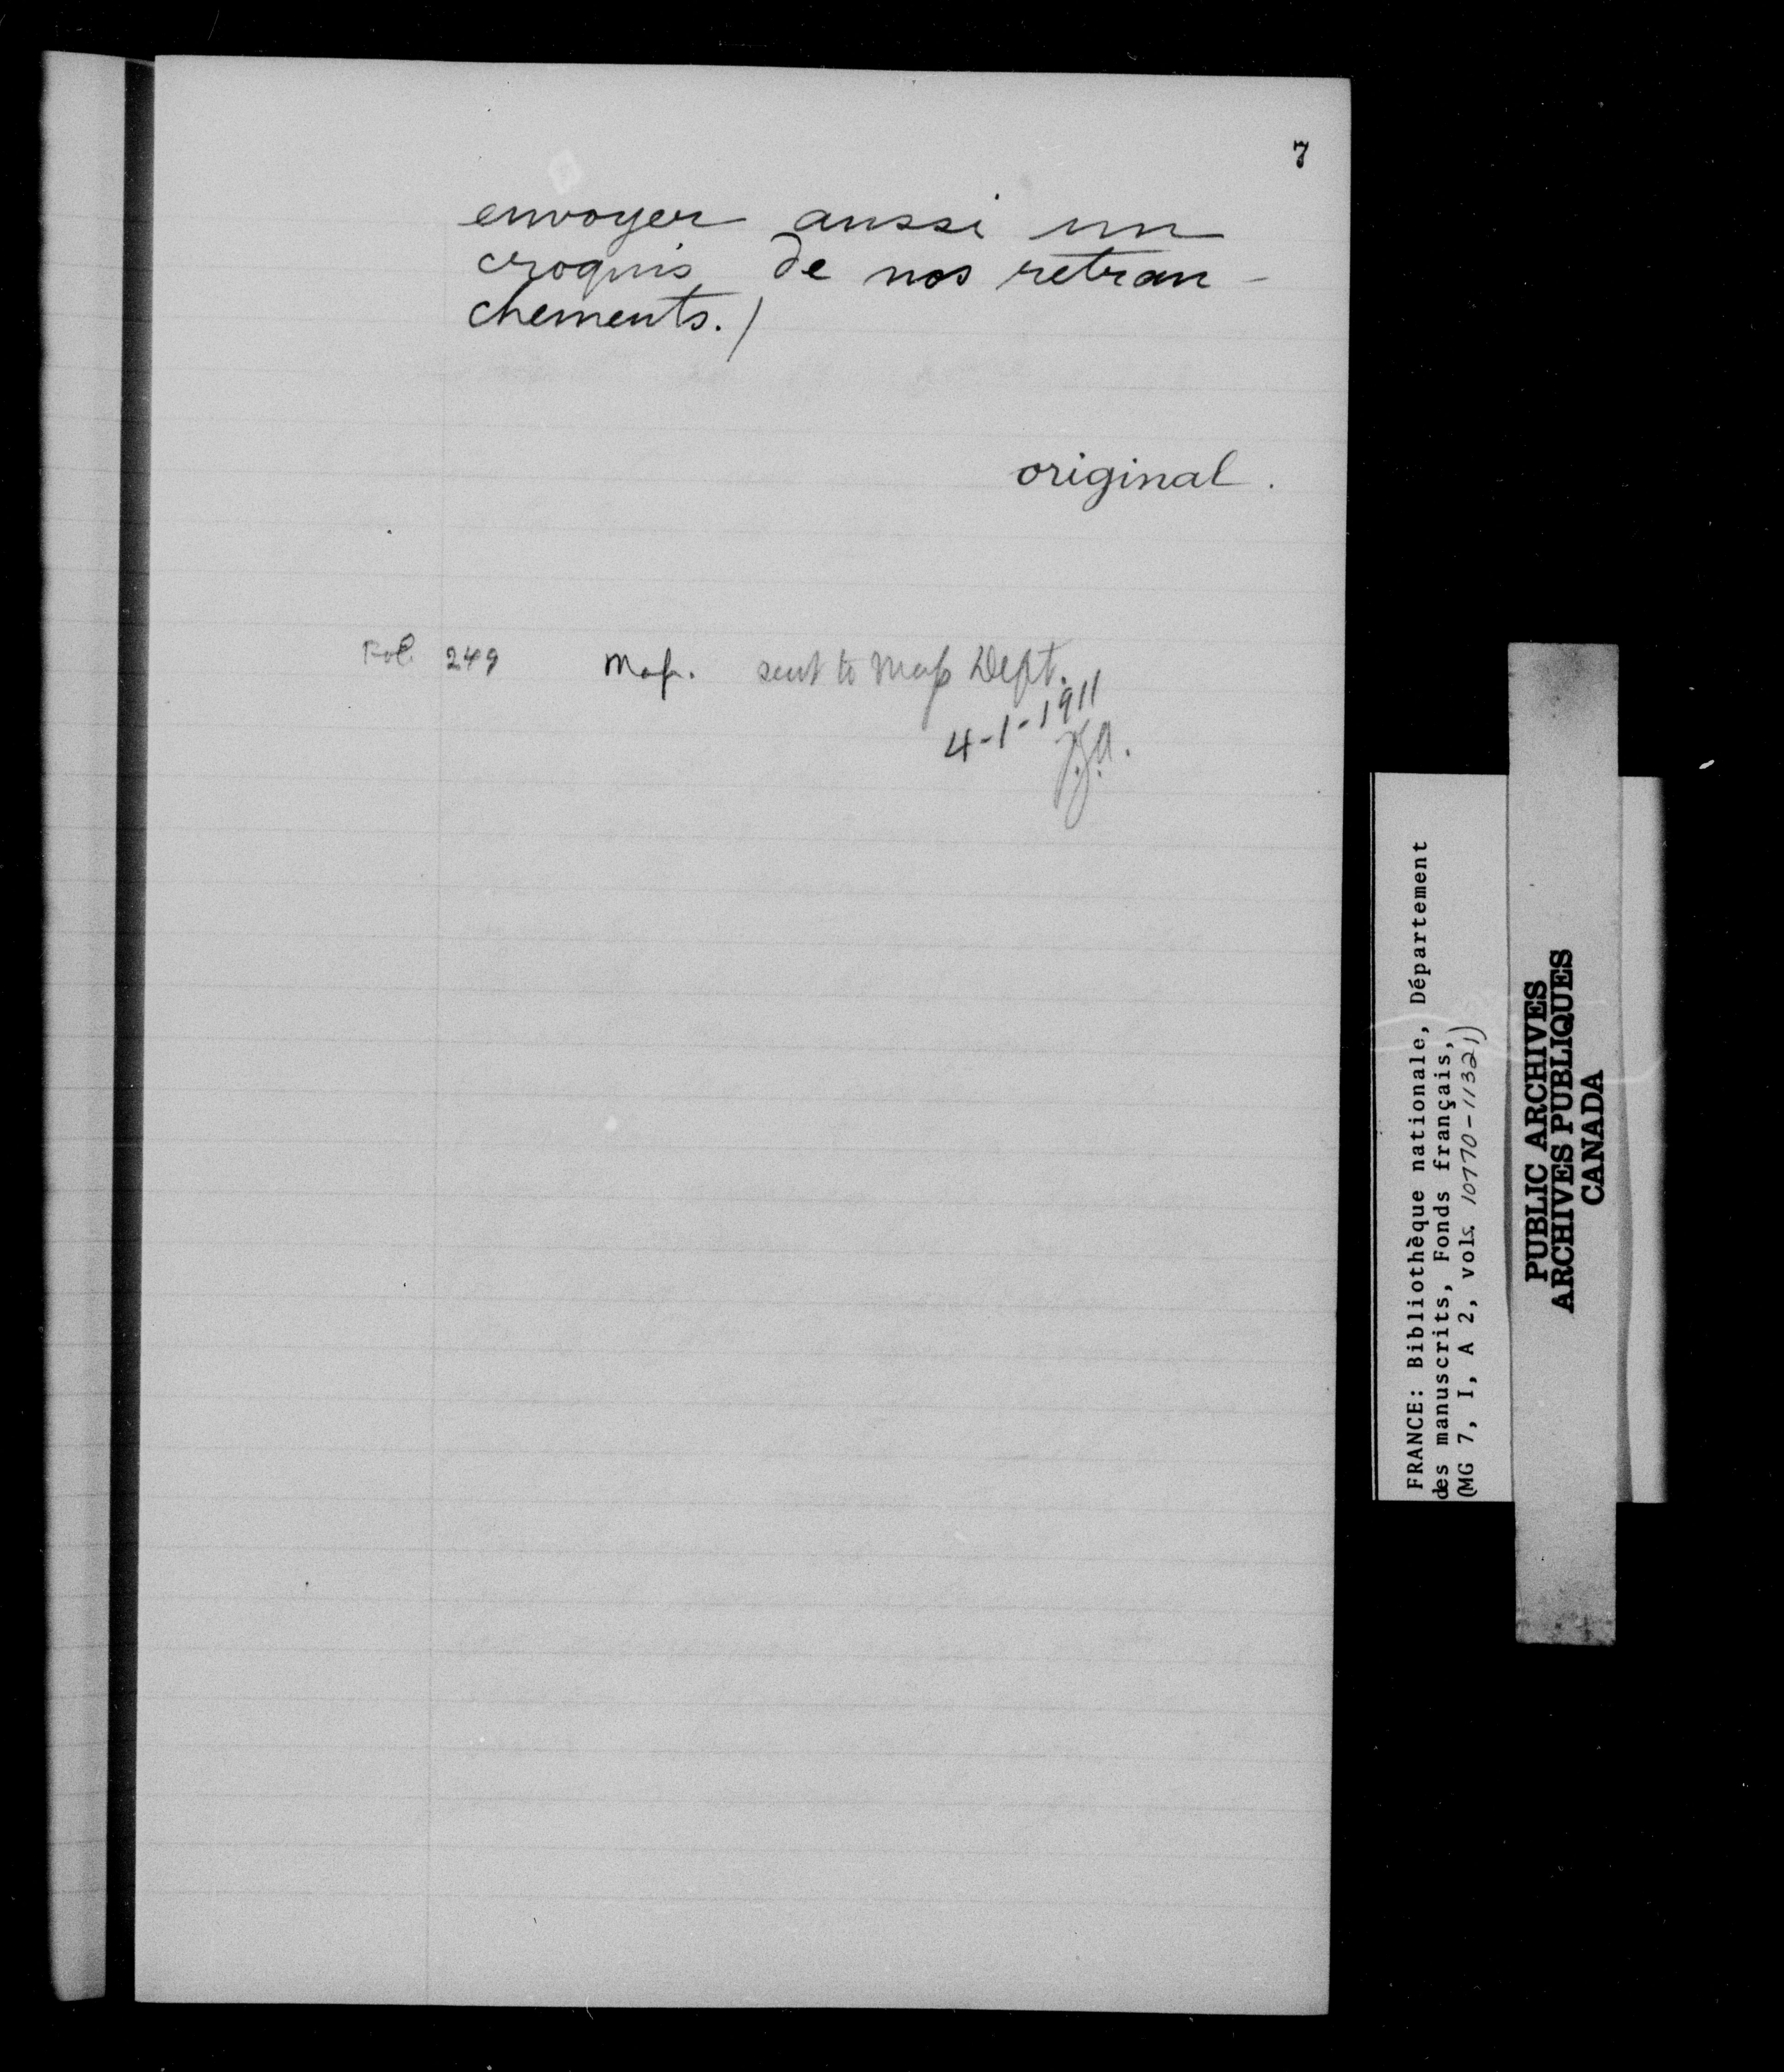 7
envoyer aussi un
croquis de nos retran-
chements./
original.
Fol. 249 Map. sent to Map Dept.
4-1-1911
FRANCE: Bibliothèque nationale, Département
des manuscrits, Fonds français,
(MG 7, I, A 2, vols. 10770-11321)
PUBLIC ARCHIVES
ARCHIVES PUBLIQUES
CANADA